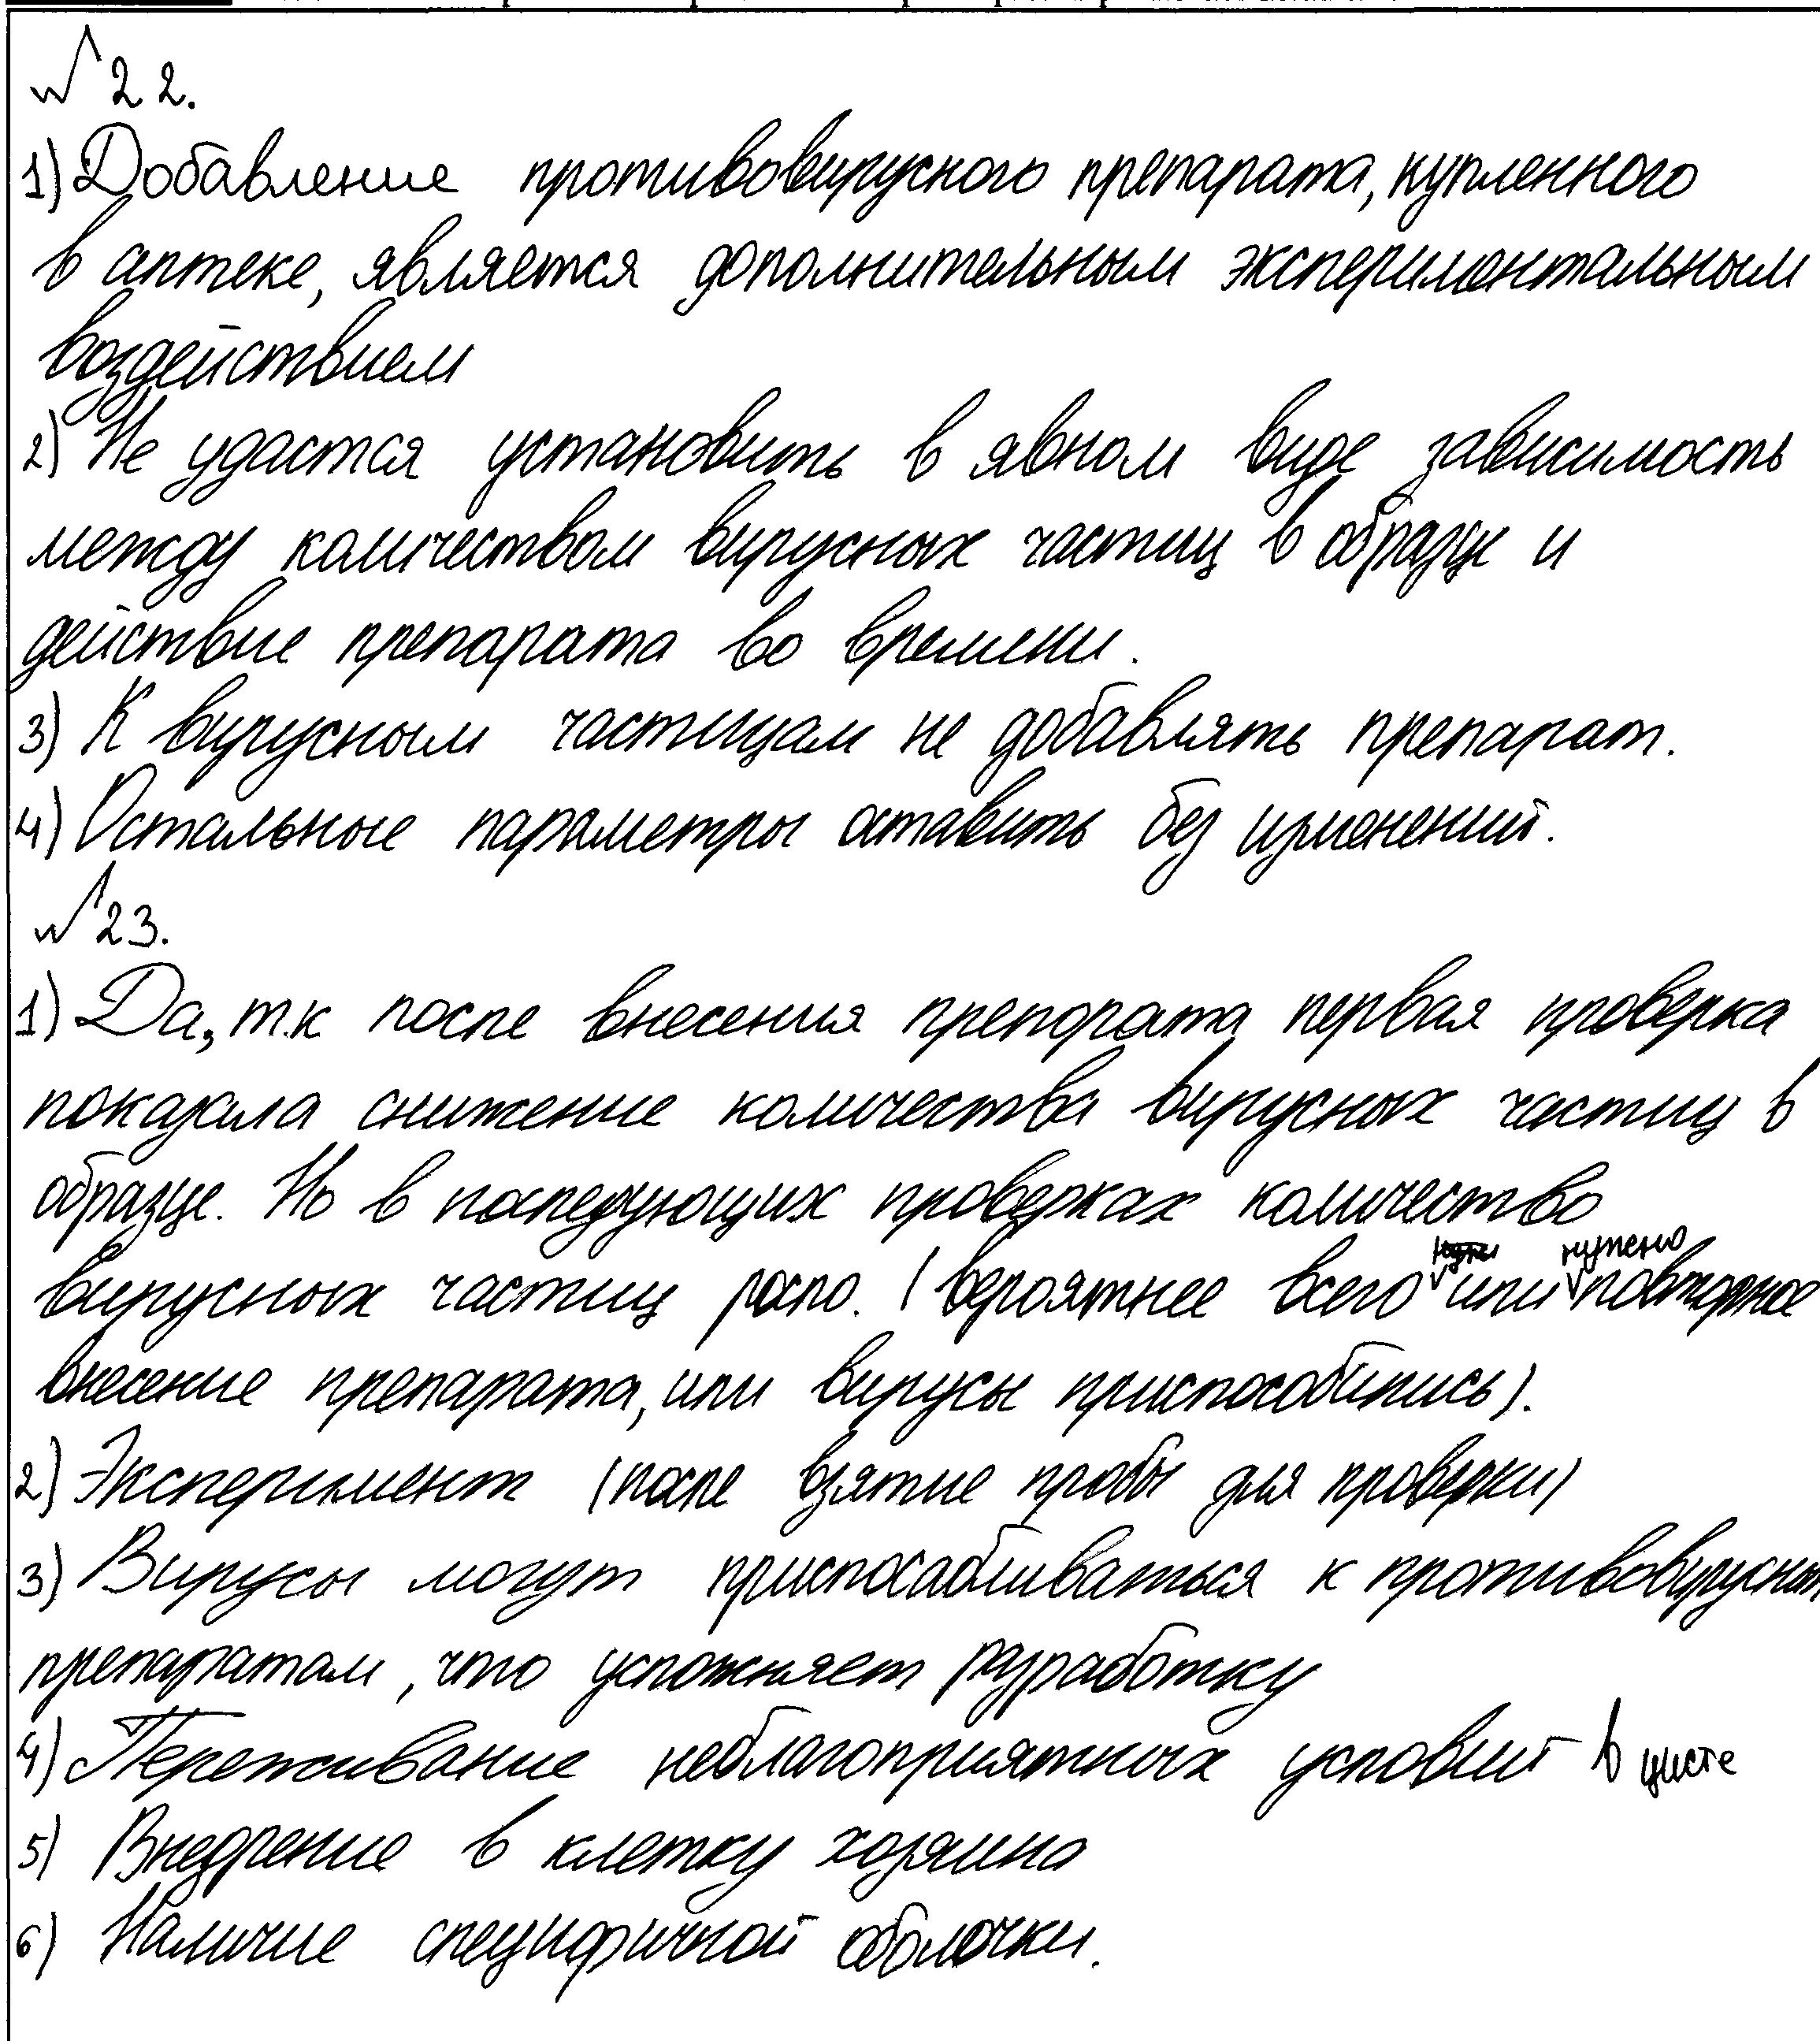 № 22.
1) Добавление противовирусного препарата, купленного
в аптеке, является дополнительным экспериментальным
воздействием
2) Не удастся установить в явном виде зависимость
между количеством вирусных частиц в образце и
действие препарата во времени.
3) К вирусным частицам не добавлять препарат.
4) Остальные параметры оставить без изменений.
№ 23.
1) Да, т.к после внесения препората первая проверка
показала снижение количества вирусных частиц в
образце. Но в последующих проверках количество
вирусных частиц росло. (вероятнее всего или нужно повторное
внесение препарата, или вирусы приспособились).
2) Эксперимент (после взятие пробы для проверки)
3) Вирусы могут приспосабливаться к противовирусным
препаратам, что усложняет разработку
4) Переживание неблагоприятных условий в цисте
5) Внедрение в клетку хозяина
6) Наличие специфичной оболочки.